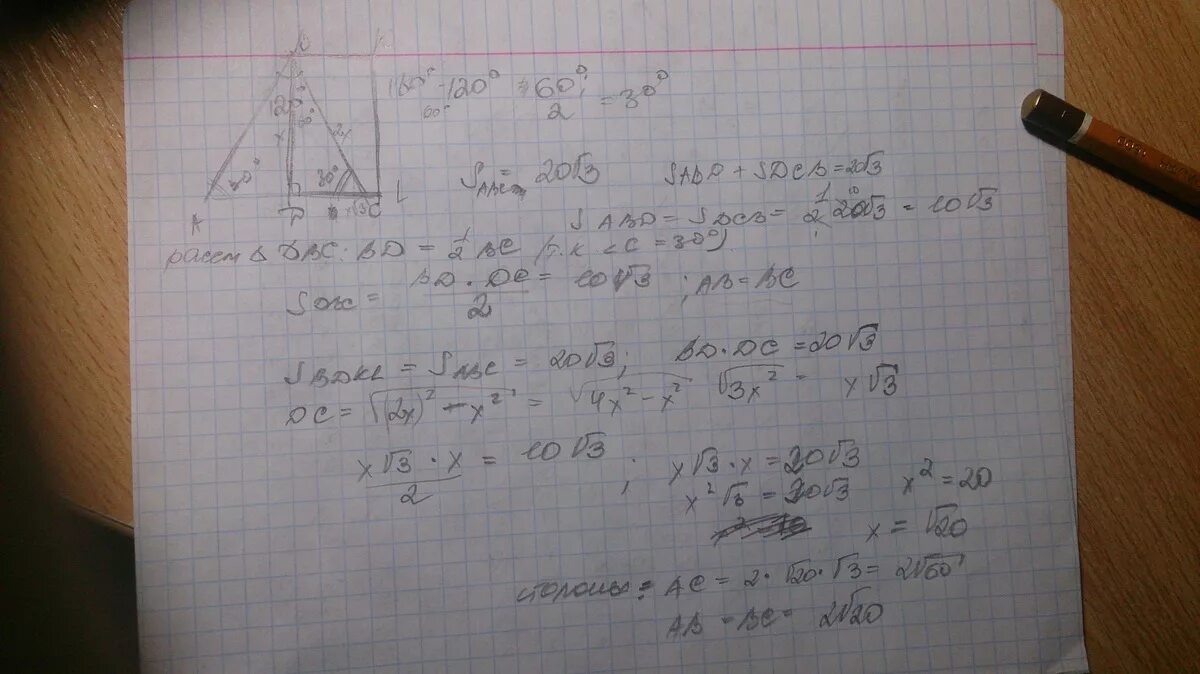 120°
60°
x
2x
30°
30°
A
D
x√3
C
L
180° - 120° = 60°; 60°/2 = 30°
S ABC = 20√3
S ABD + S DCB = 20√3
S ABD = S DCB = 1/2 20√3 = 10√3
рассм Δ DBC: BD = 1/2 BC (т.к. <C = 30°)
S DBC = BD · DC / 2 = 10√3 ; AB = BC
S BDKL = S ABC = 20√3; BD · DC = 20√3
DC = √(2x)² - x² = √4x² - x² √3x² = x√3
x√3 · x / 2 = 10√3 ; x√3 · x = 20√3
x²√3 = 20√3 x² = 20
x = √20
стороны: AC = 2 · √20 · √3 = 2√60
AB = BC = 2√20